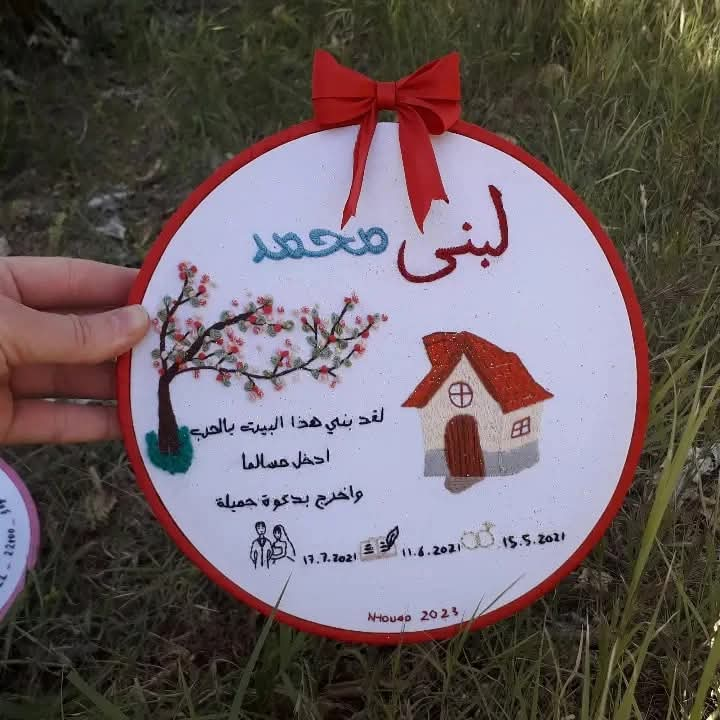 لبنى محمد
لقد بني هذا البيت بالحب
أدخل مسالما
واخرج بدعوة جميلة
15.5.2021 11.6.2021 17.7.2021
2023